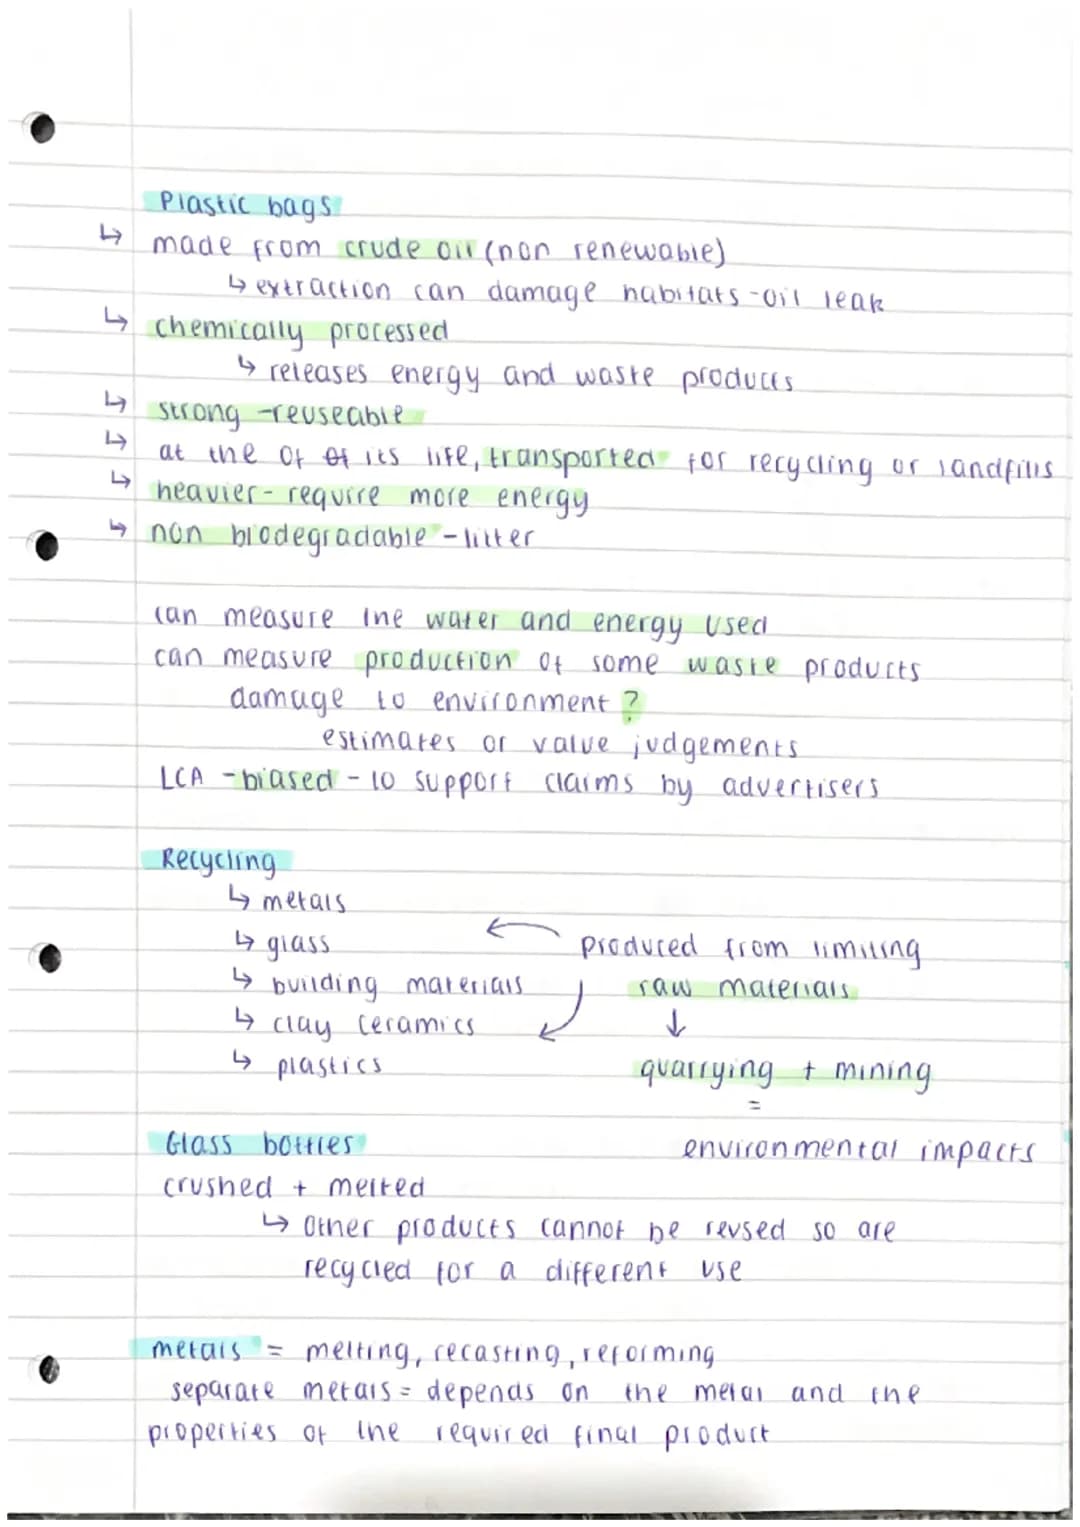 Plastic bags
↳ made from crude oil (non renewable)
↳ extraction can damage habitats - oil leak
↳ chemically processed
↳ releases energy and waste products
↳ strong - reuseable
↳ at the of of its life, transported for recycling or landfills
↳ heavier - require more energy
↳ non biodegradable - litter
can measure the water and energy used
can measure production of some waste products
damage to environment ?
estimates or value judgements
LCA - biased - to support claims by advertisers
Recycling
↳ metals
↳ glass
↳ building materials
↳ clay ceramics
↳ plastics
produced from limiting
raw materials
↓
quarrying + mining
=
environmental impacts
Glass bottles
crushed + melted
↳ Other products cannot be reused so are
recycled for a different use
metals = melting, recasting, reforming
separate metals = depends on the metal and the
properties of the required final product